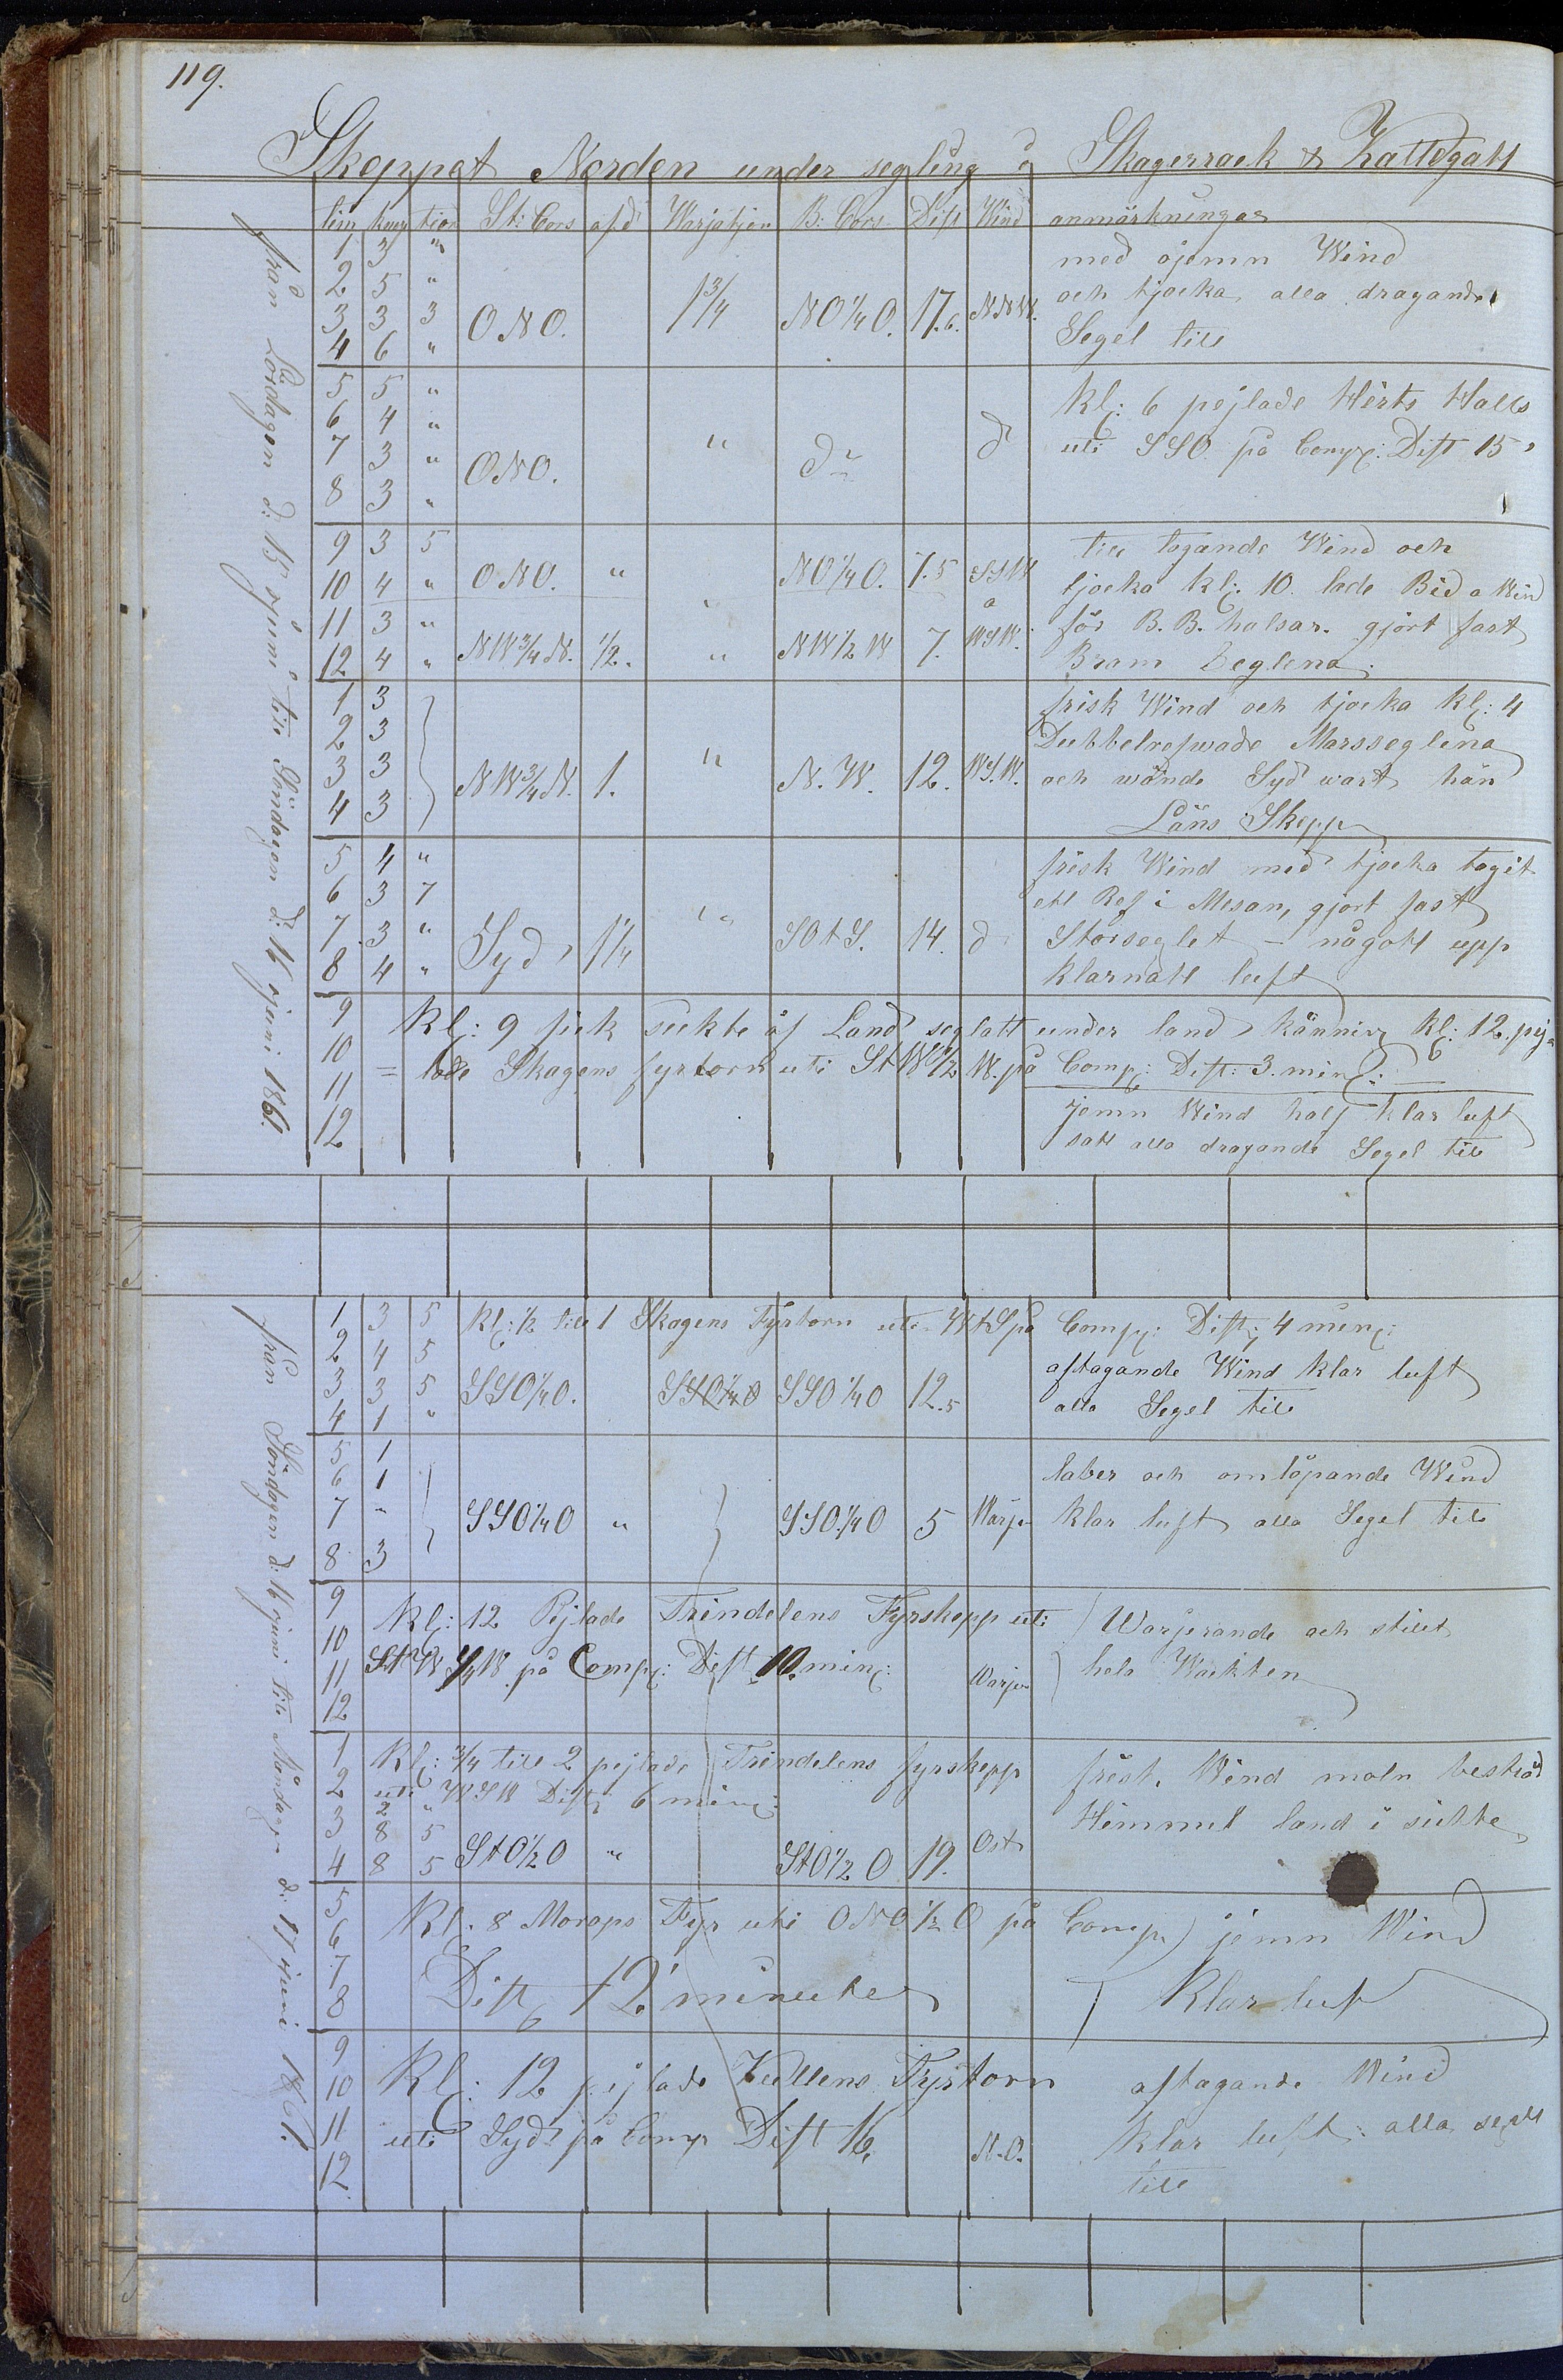 119.
Skeppet Norden under segling i Skagerrack & Kattegatt
tim knop tion St: Cors afd Warjatjon B: Cors Dist Wind anmärkningar
från Lördagen d: 15 juni till Söndagen d: 16 juni 1861.
1 3 " med ojemn Wind
2 5 " och tjocka alla dragande
3 3 3 ONO. 1 3/4 NO 1/4 O. 17.6. NNW.
4 6 " Segel till
5 5 " Kl: 6 pejlade Hirts Halls
6 4 " uti SSO på Comp: Dist 15
7 3 " ONO. " do d
8 3 "
9 3 5 till tagande Wind och
10 4 " ONO. " NO 1/4 O. 7.5 SSW tjocka kl: 10. lade Bid a Wind
11 3 " " a för B.B. halsar. gjort fast
12 4 " NW 3/4 N. 1/2. " NW 1/2 W 7. WSW. Bram Seglena.
1 3 frisk Wind och tjocka kl: 4
2 3 Dubbelrefwade Marsseglena
3 3 NW 3/4 N. 1. " N.W. 12. WSW. och wände Syd wart hän
4 3 Läns Skepp
5 4 " frisk Wind med tjocka tagit
6 3 7 ett Ref i Mesan, gjort fast
7 3 " Syd 1 1/4 " SOtS. 14. d Storseglet - något upp
8 4 " klarnatt luft
9 Kl: 9 fick sickte af Land seglatt under land känning kl: 12. pej
10 = lade Skagens fyrtorn uti StW 1/2 W. på Comp: Dist: 3. min:
11 jemn Wind half klar luft
12 satt alla dragande Segel till
från Söndagen d: 16 juni till Måndagen d: 17 juni 1861.
1 3 5 Kl: 1/2 till 1 Skagens Fyrtorn uti WtS på Comp: Dist; 4 min:
2 4 5 aftagande Wind klar luft
3 3 5 SSO 1/4 O. SSO 1/4 O SSO 1/4 O 12.5
4 1 " alla Segel till
5 1 laber och omlöpande Wind
6 1
7 " SSO 1/4 O " SSO 1/4 O 5 Warje klar luft alla Segel till
8 3
9 Kl: 12 Pejlade Trindelens Fyrskepp uti Warjerande och stilt
10 StW 1/4 W. på Comp: Dist 10. min: Warje hela Wackten
11
12
1 Kl: 3/4 till 2 pejlade Trindelens fyrskepp frisk Wind moln beströd
2 uti WSW Dist; 6 min:
2 " Himmel land i sickte
3 8 5
4 8 5 StO 1/2 O " StO 1/2 O 19. Ost
5 Kl: 8 Morops Fyr uti ONO 1/2 O på Comp jemn Wind
6
7 Dist 12 minuter Klar luft
8
9 Kl: 12 pejlade Kullens Fyrtorn aftagande Wind
10
11 uti Syd på Comp Dist 16. N.O. klar luft: alla segel
12. till